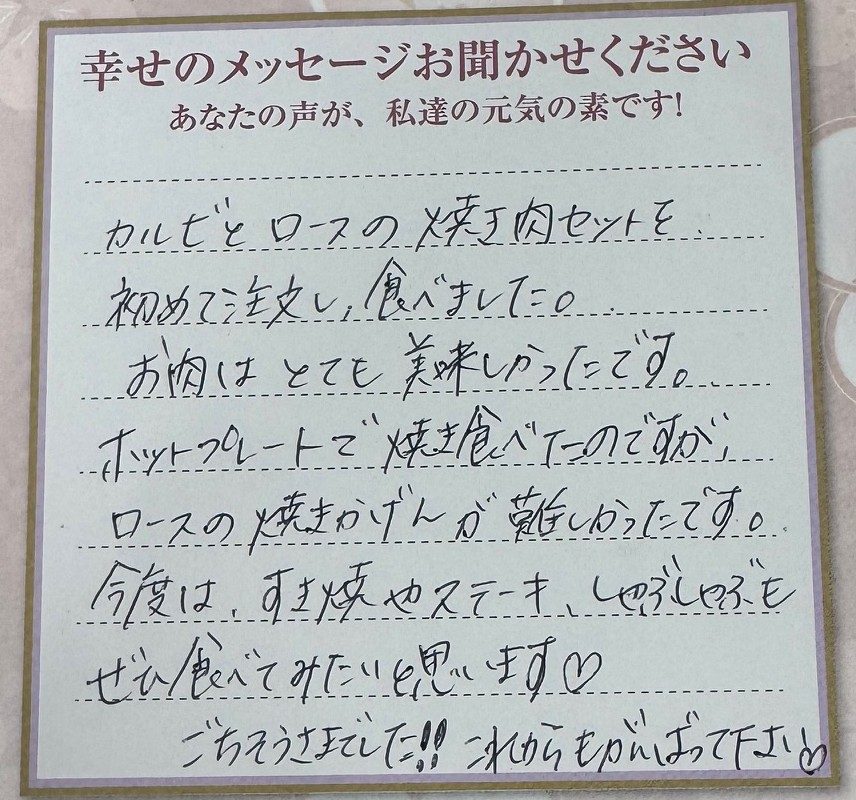 幸せのメッセージお聞かせください
あなたの声が、私達の元気の素です!
カルビとロースの焼き肉セットを
初めて注文し、食べました。
お肉はとても美味しかったです。
ホットプレートで焼き食べたのですが、
ロースの焼きかげんが難しかったです。
今度は、すき焼やステーキ、しゃぶしゃぶも
ぜひ食べてみたいと思います♡
ごちそうさまでした!! これからもがんばって下さい♡